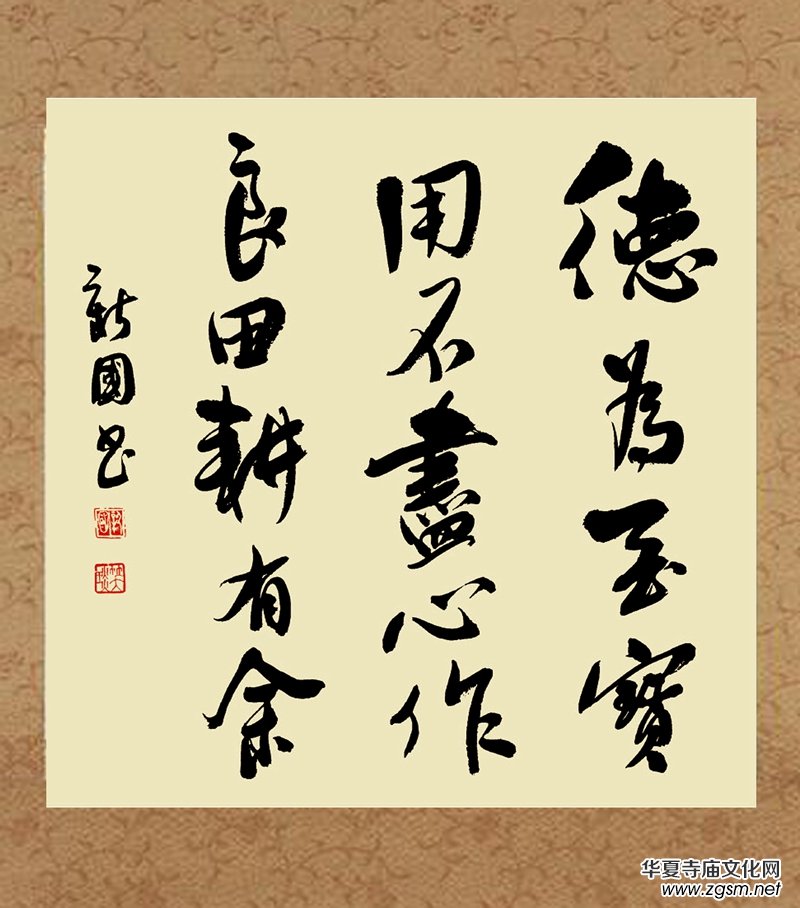 德為至寶
用不盡心作
良田耕有余
新國書
华夏寺庙文化网
www.zgsm.net